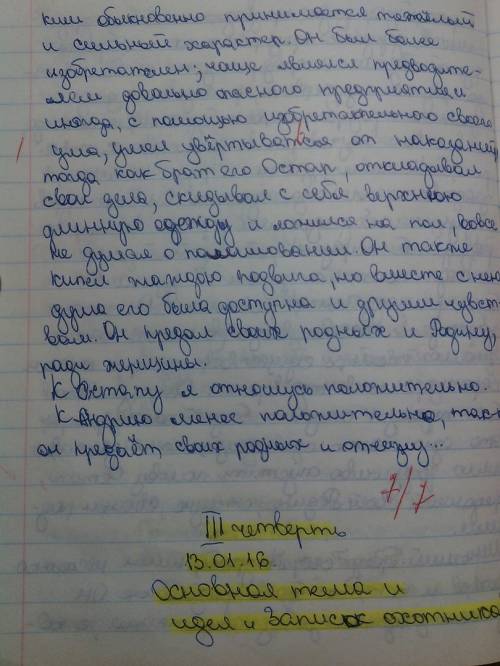 ким обыкновенно принимается тяжёлый
и сильный характер. Он был более
изобретателен; чаще являлся предводите-
лем довольно опасного предприятия и
иногда, с помощью изобретательного своего
ума, умел увёртываться от наказания,
тогда как брат его Остап, откладывал
свои дела, скидывал с себя верхнюю
длинную одежду и ложился на пол, вовсе
не думая о помиловании. Он также
кипел жаждою подвига, но вместе с нею
душа его была доступна и другим чувст-
вам. Он предал своих родных и Родину,
ради женщины.
К Остапу я отношусь положительно.
К Андрию менее положительно, так к
он предаёт своих родных и отчизну...
7/7
III четверть
13.01.16.
Основная тема и
идея и Записок охотника